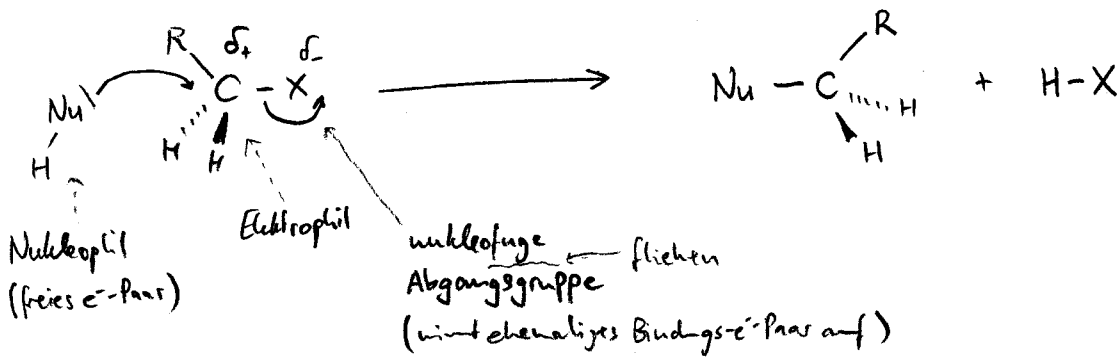 R δ+ δ-
Nu C - X → Nu - C R + H-X
H H H H H
Nukleophil
(freies e⁻-Paar)
Elektrophil
nukleofuge ← fliehen
Abgangsgruppe
(nimmt ehemaliges Bindungs-e⁻-Paar auf)